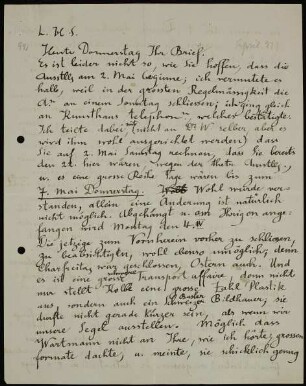 L. H. S.
Heute Donnerstag Ihr Brief.
Es ist leider nicht so, wie Sie hoffen, dass die
Ausstllg am 2. Mai beginne; ich vermutete es
halb, weil in der grossen Regelmässigkeit die
an einem Sonntag schliessen; ich ging gleich
an Kunsthaus telephon welches bestätigte.
Ich teilte dabei (nicht an Dr W selber aber es
wird ihm wohl ausgerichtet werden) dass
Sie auf 2. Mai Sonntag rechnen, das Sie bereits
den 28. hier wären wegen der Ausstllg,
u. es eine grosse Reihe Tage wären bis zum
7. Mai Donnerstag. Wohl würde ver-
standen, allein eine Änderung ist natürlich
nicht möglich. Abgehängt u. am Horizon ange-
fangen wird Montag den 4.
Die jetzige zum Vornherein vorher zu schliessen,
zu beabsichtigen, wohl ebenso unmöglich, denn
Charfreitag war geschlossen, Ostern auch. Und
es ist eine grosse Transport affaire, denn nicht
nur stellt Kolbe eine grosse Zahl Plastik
aus, sondern auch ein Bildhauer, sie
dürfte nicht gerade kürzer sein, als wenn wir
unsere Segel ausstellen. Möglich dass
Wartmann nicht an Ihre, wie ich hörte, grossen
formate dachte, u. meinte, sie schicklich genug